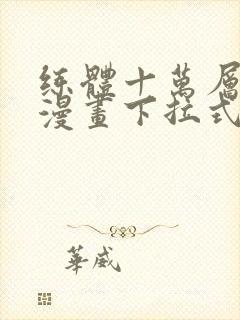 練體十萬層
漫畫下拉式
華威